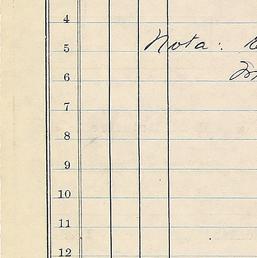 4
Nota:
5
6
7
8
9
10
11
12